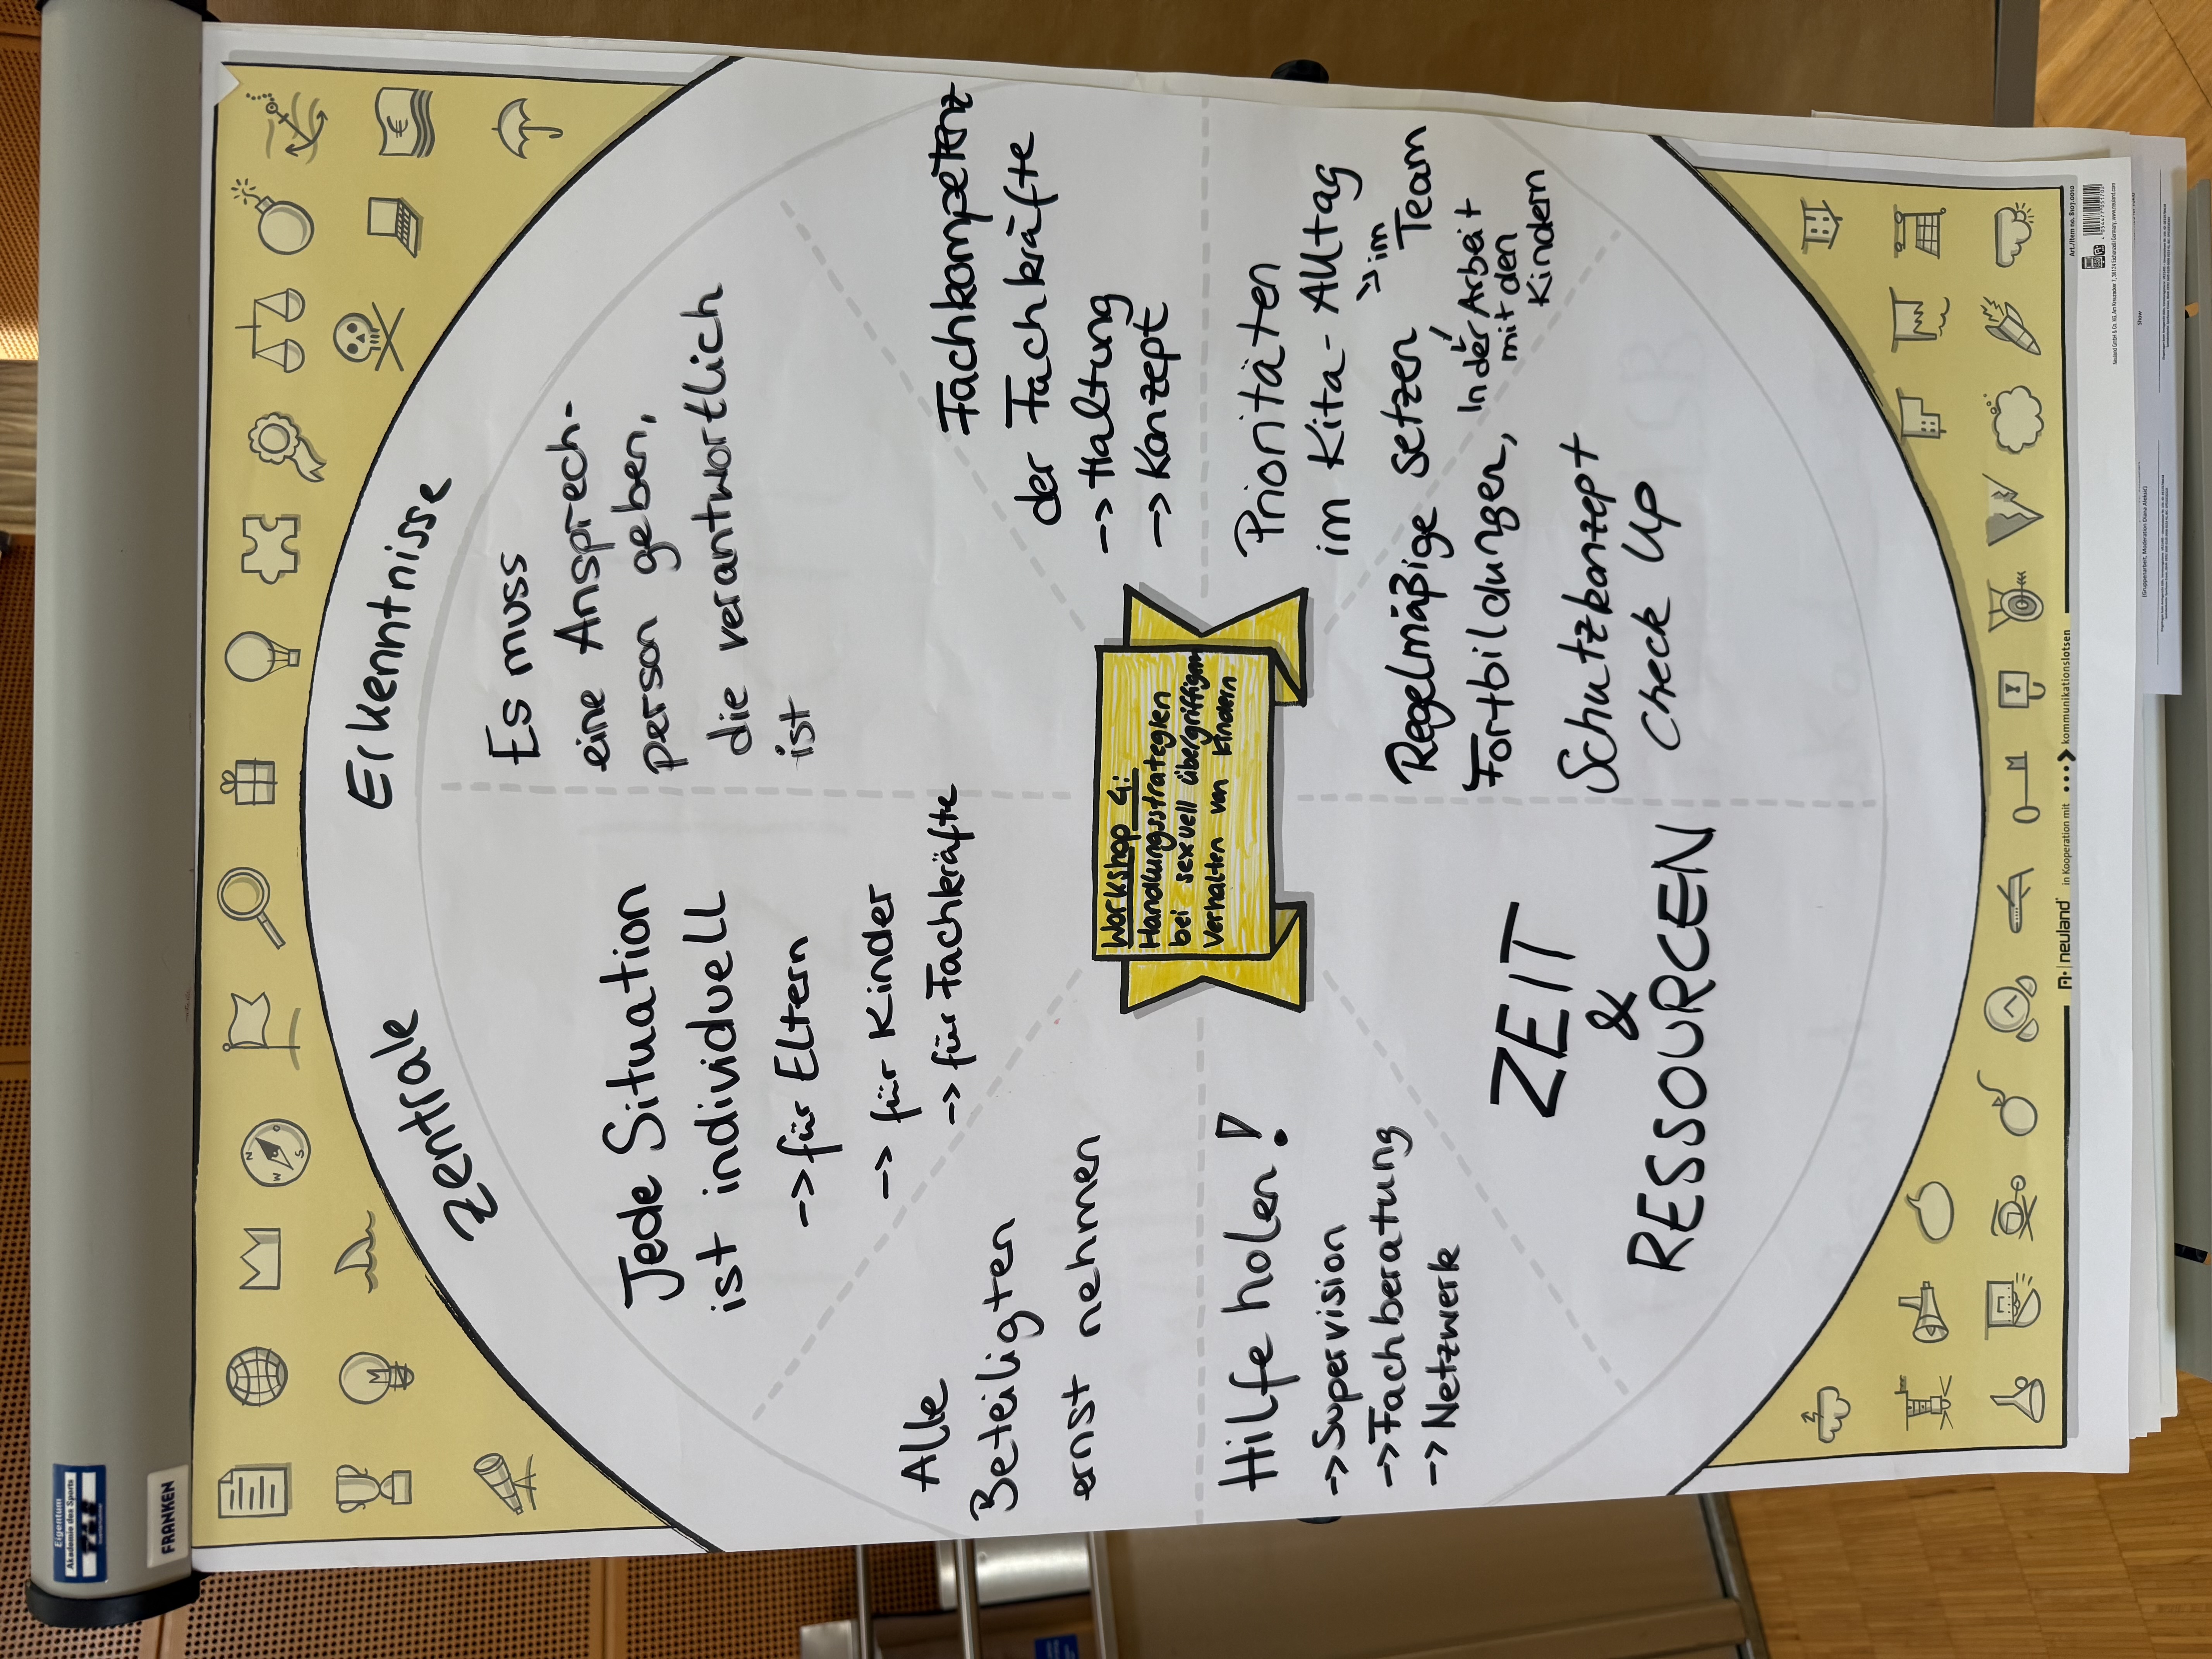 Zentrale Erkenntnisse
Jede Situation
ist individuell
-> für Eltern
-> für Kinder
-> für Fachkräfte
Es muss
eine Ansprech-
person geben,
die verantwortlich
ist
Alle
Beteiligten
ernst nehmen
Fachkompetenz
der Fachkräfte
-> Haltung
-> Konzept
Workshop 4:
Handlungsstrategien
bei sexuell übergriffigem
Verhalten von Kindern
Hilfe holen!
-> Supervision
-> Fachberatung
-> Netzwerk
Prioritäten
im Kita-Alltag
setzen
-> im Team
In der Arbeit
mit den
Kindern
ZEIT
&
RESSOURCEN
Regelmäßige
Fortbildungen,
Schutzkonzept
Check Up
neuland
in Kooperation mit kommunikationslotsen
Art./Item no. 8107.0010
Eigentum
Akademie des Sports
FRANKEN
N
S
W
€